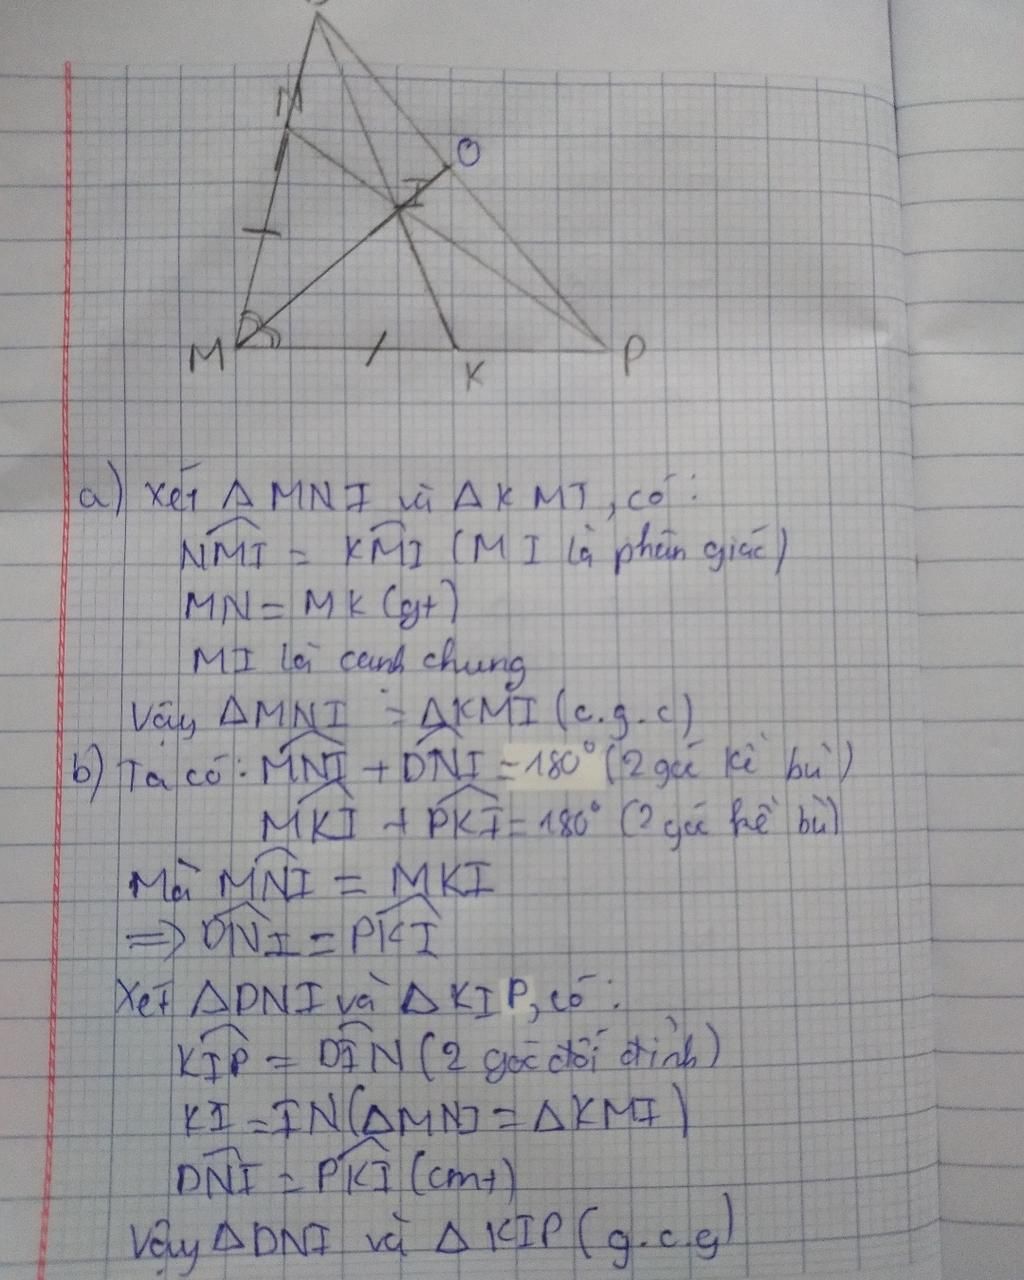 N
O
I
M
K
P
a) Xét Δ MNI và Δ KMI, có:
NMI = KMI (MI là phân giác)
MN = MK (gt)
MI là cạnh chung
Vậy ΔMNI = ΔKMI (c.g.c)
b) Ta có: MNI + DNI = 180° (2 góc kề bù)
MKI + PKI = 180° (2 góc kề bù)
Mà MNI = MKI
=> DNI = PKI
Xét ΔDNI và Δ KIP, có:
KIP = DIN (2 góc đối đỉnh)
KI = IN (ΔMNI = ΔKMI)
DNI = PKI (cmt)
Vậy Δ DNI và Δ KIP (g.c.g)